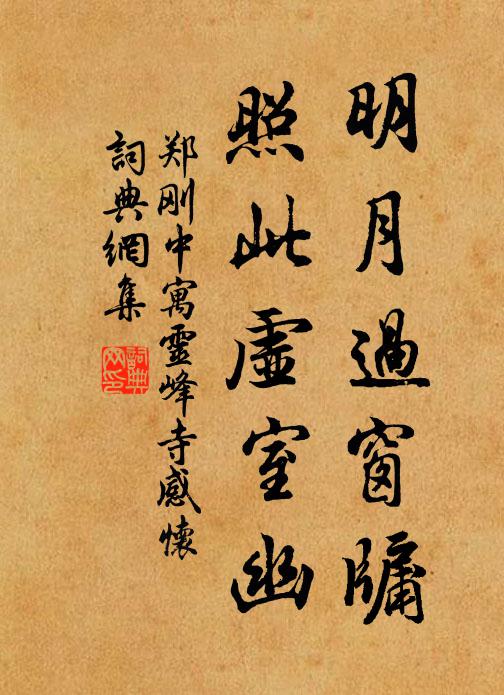 明月過窗牖
照此虛室幽
郑刚中寓靈峰寺感懷
詞典網集
詞典網印